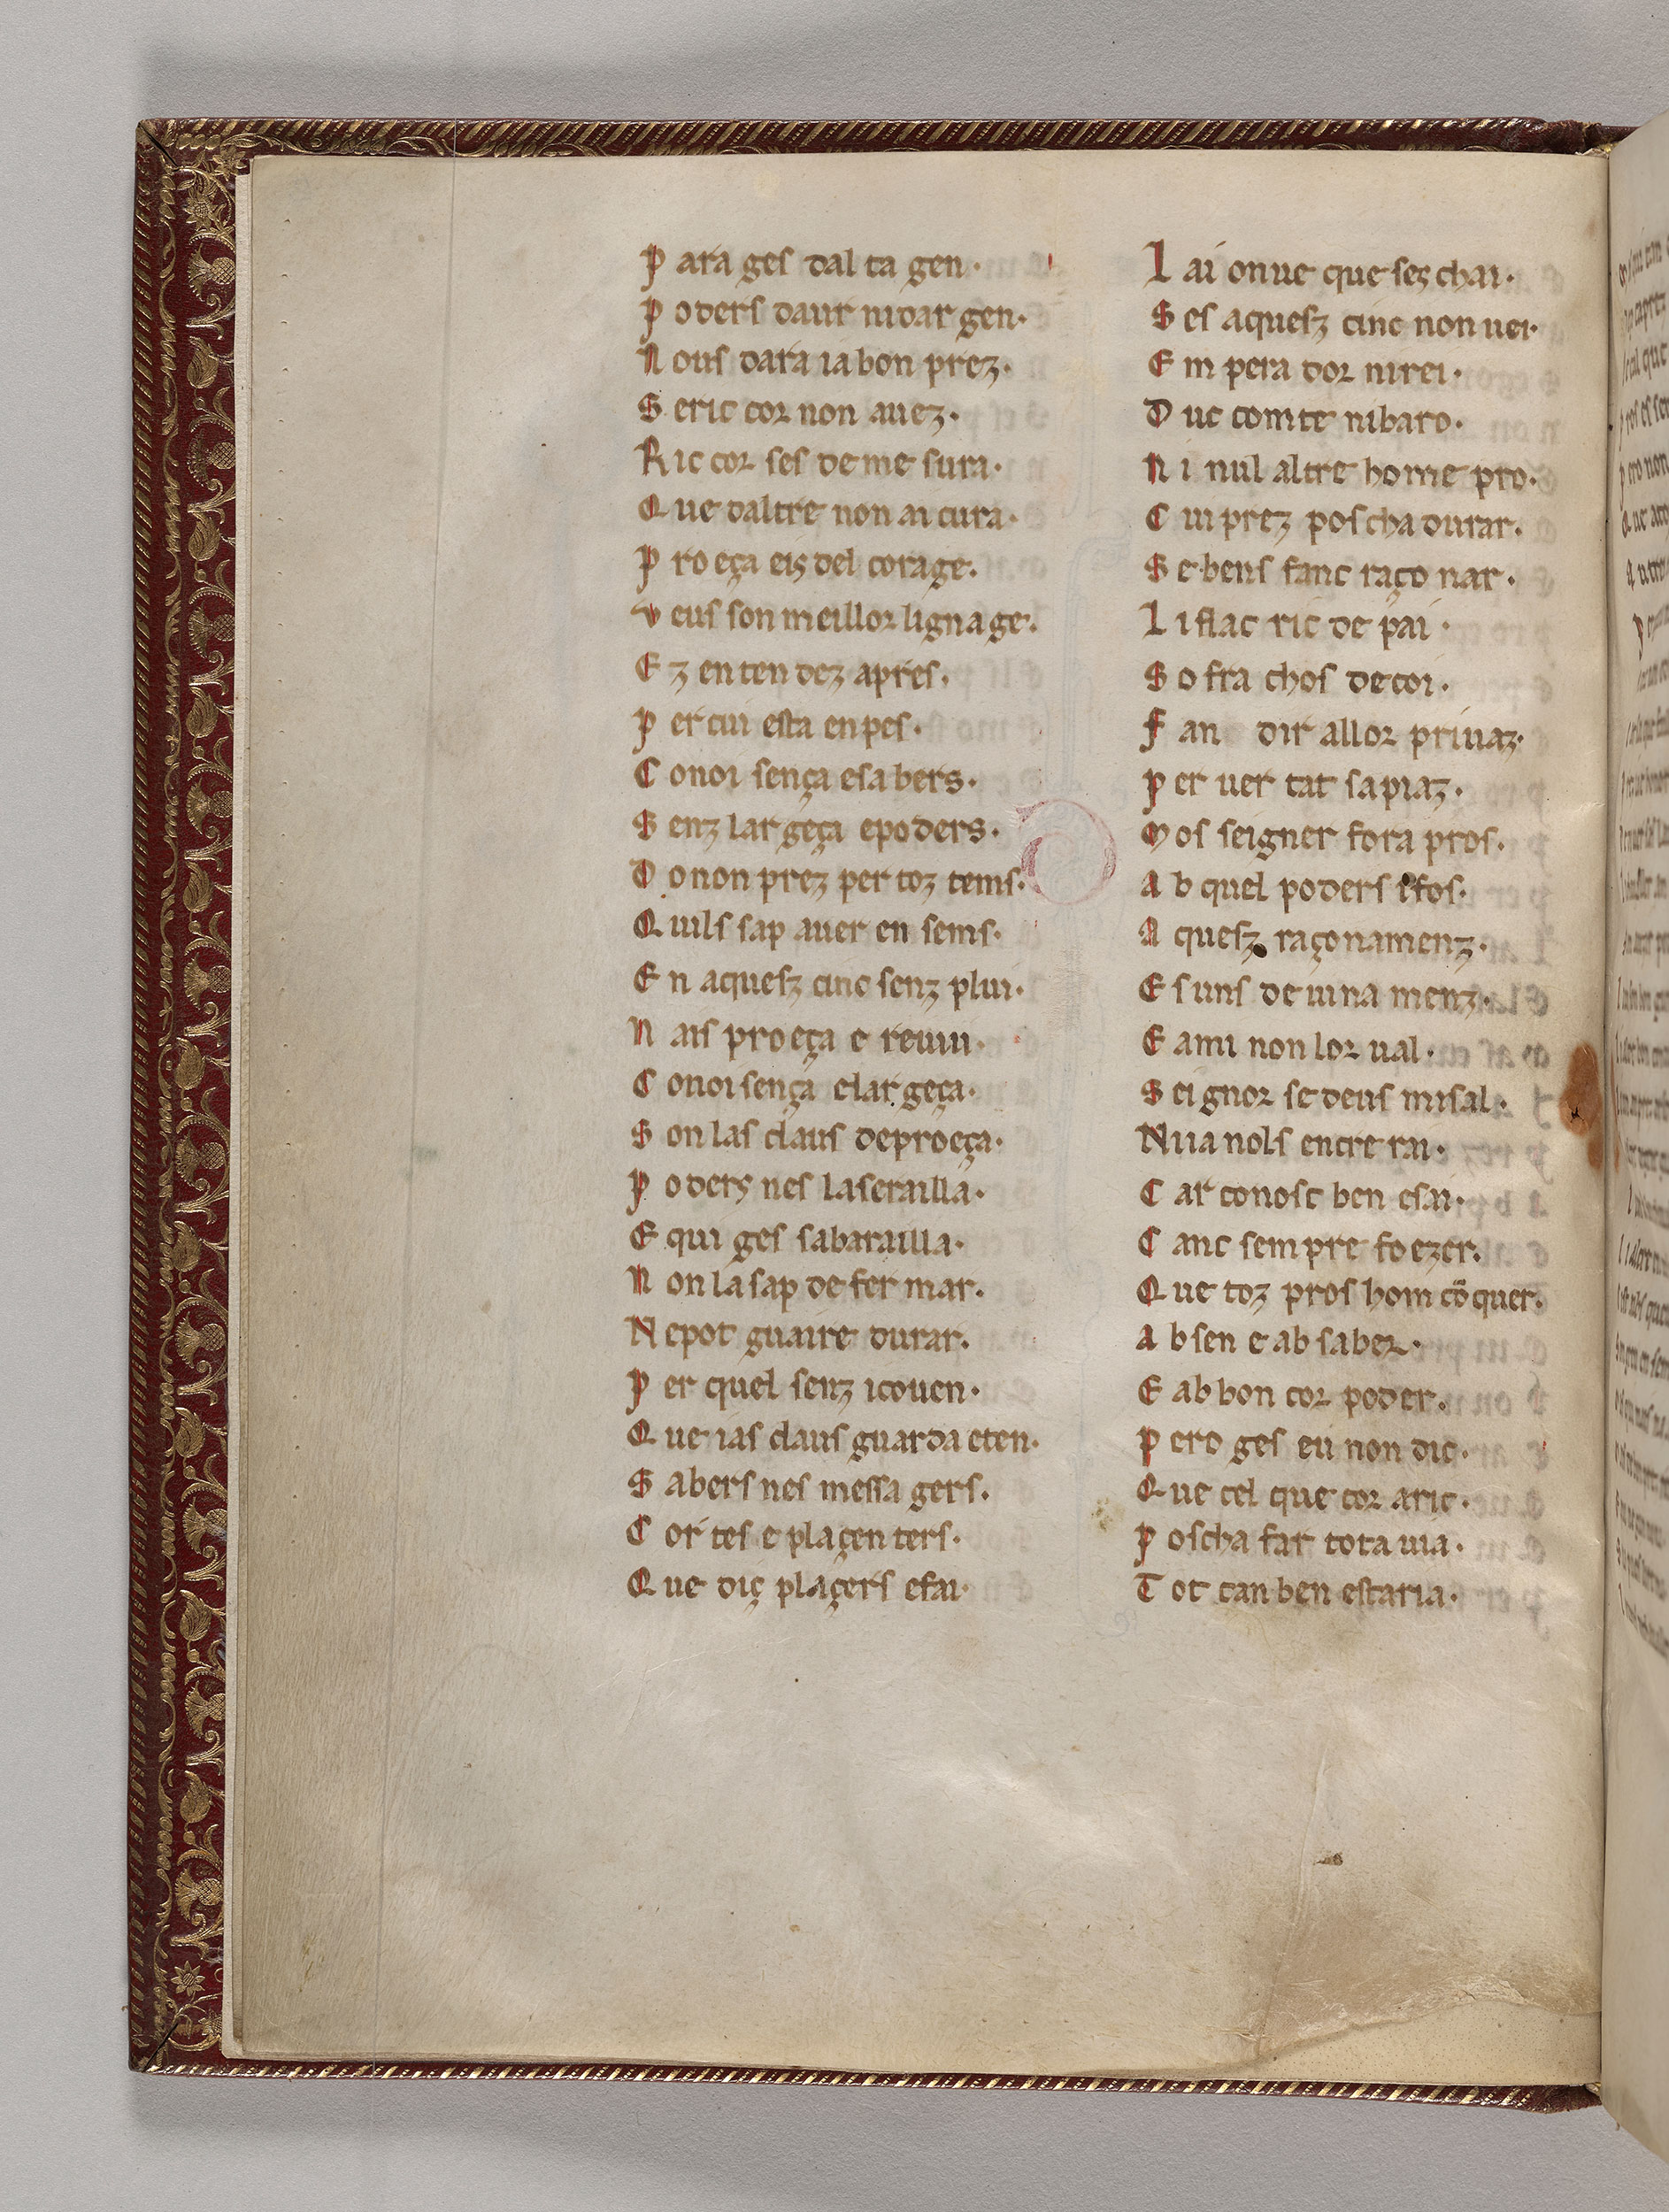 P ara ges dal ta gen·
P oders daur nidar gen·
N ous dara ia bon prez·
S eric cor non auez·
R ic cor ses de me sura·
Q ue daltre non ai cura·
P ro eça eis del corage·
v eus son meillor ligna ge·
E z en ten dez apres·
P er cui esta en pes·
C onoi sença esa bers·
S enz lar geça epo ders·
D onon prez per toz tems·
Q uils sap auer en sems·
E n aquesz cinc senz plui·
N ais pro eça e reuiu·
C onoi sença e lar geça·
S on las claus deproeça·
P oders nes la serailla·
E qui ges sabarailla·
N on la sap de fer mar·
N epot guaire durar·
P er quel senz icouen·
Q ue ias claus guarda eten·
S abers nes messa gers·
C or tes e plaçen ters·
Q ue diç plaçers efai·
L ai onue que ses chai·
S es aquesz cinc non uei·
E m pera dor ni rei·
D uc comte ni baro·
N i nul altre home pro·
C ui prez pos cha durar·
S e bens fanc raço nar·
L i flac ric de pai·
S o fra chos de coi·
F an dir allor priuaz·
P er uer tat sapiaz·
M os seigner fora pros·
A b quel poders ifos·
A quesz raçonamenz·
E s uns de uina menz·
E ami non lor ual·
S ei gnor se deus mi sal·
N ua nols entre rai·
C ar conosc ben esai·
C anc sem pre fo ezer·
Q ue toz pros hom cōquer·
A b sen e ab saber·
E ab bon cor poder·
P ero ges eu non dic·
Q ue cel que cor aric·
P oscha far tota uia·
T ot tan ben estaria·